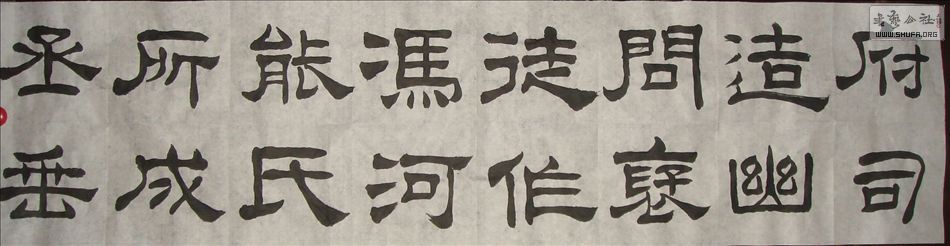 府司
造幽
問褒
徒作
馮河
能氏
所成
丞垂
公社
WWW.SHUFA.ORG